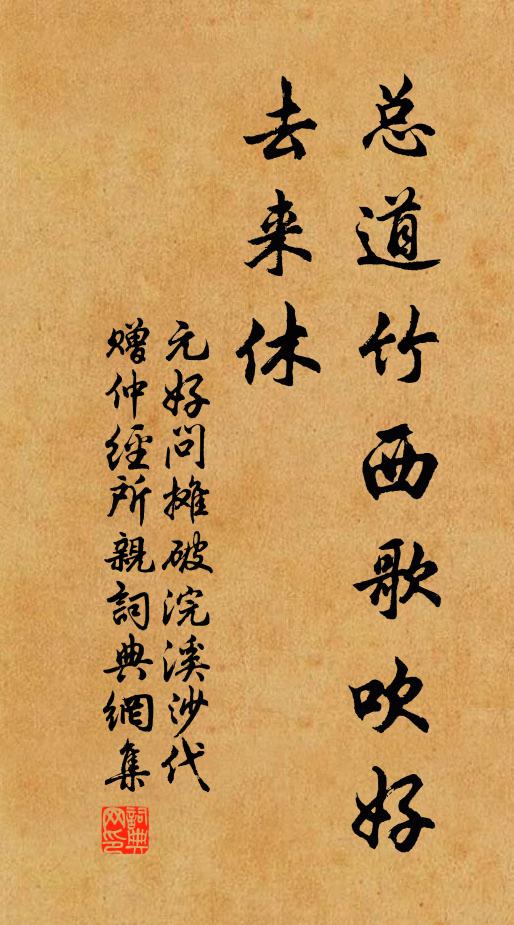 总道竹西歌吹好
去来休
元好问摊破浣溪沙代
赠仲经所親詞典網集
詞典网印